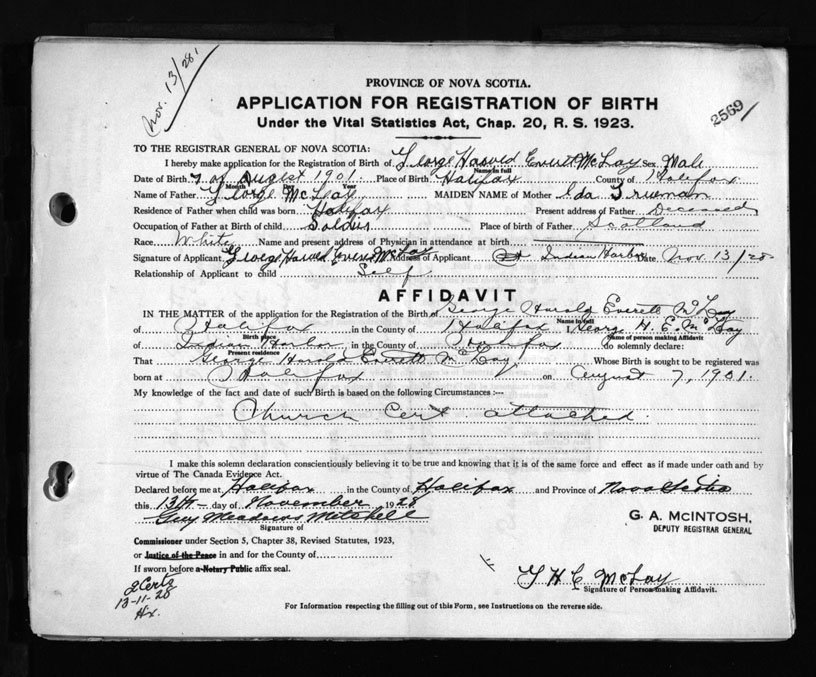 Nov. 13/28
PROVINCE OF NOVA SCOTIA.
APPLICATION FOR REGISTRATION OF BIRTH
2569
Under the Vital Statistics Act, Chap. 20, R. S. 1923.
TO THE REGISTRAR GENERAL OF NOVA SCOTIA:
I hereby make application for the Registration of Birth of George Harold Everett McLay Sex Male
Name in full
Date of Birth 7 of August 1901 Place of Birth Halifax County of Halifax
Month Day Year
Name of Father George McLay MAIDEN NAME of Mother Ida Trueman
Residence of Father when child was born Halifax Present address of Father Deceased
Occupation of Father at Birth of child Soldier Place of birth of Father Scotland
Race White Name and present address of Physician in attendance at birth
Signature of Applicant George Harold Everett McLay Address of Applicant Indian Harbor Date Nov. 13/28
Relationship of Applicant to child Self
AFFIDAVIT
IN THE MATTER of the application for the Registration of the Birth of George Harold Everett McLay
Name in full
of Halifax in the County of Halifax I, George H. E. McLay
Birth place Name of person making Affidavit
of Indian Harbor in the County of Halifax do solemnly declare:
Present residence
That George Harold Everett McLay Whose Birth is sought to be registered was
born at Halifax on August 7, 1901.
My knowledge of the fact and date of such Birth is based on the following Circumstances :—
Church Cert. attached.
I make this solemn declaration conscientiously believing it to be true and knowing that it is of the same force and effect as if made under oath and by
virtue of The Canada Evidence Act.
Declared before me at Halifax in the County of Halifax and Province of Nova Scotia
this 13th day of November 1928
Guy Meadows Mitchell
Signature of
G. A. McINTOSH,
DEPUTY REGISTRAR GENERAL
Commissioner under Section 5, Chapter 38, Revised Statutes, 1923,
or Justice of the Peace in and for the County of
If sworn before a Notary Public affix seal.
2 Certs
13-11-28
Hx.
G H E McLay
Signature of Person making Affidavit.
For Information respecting the filling out of this Form, see Instructions on the reverse side.